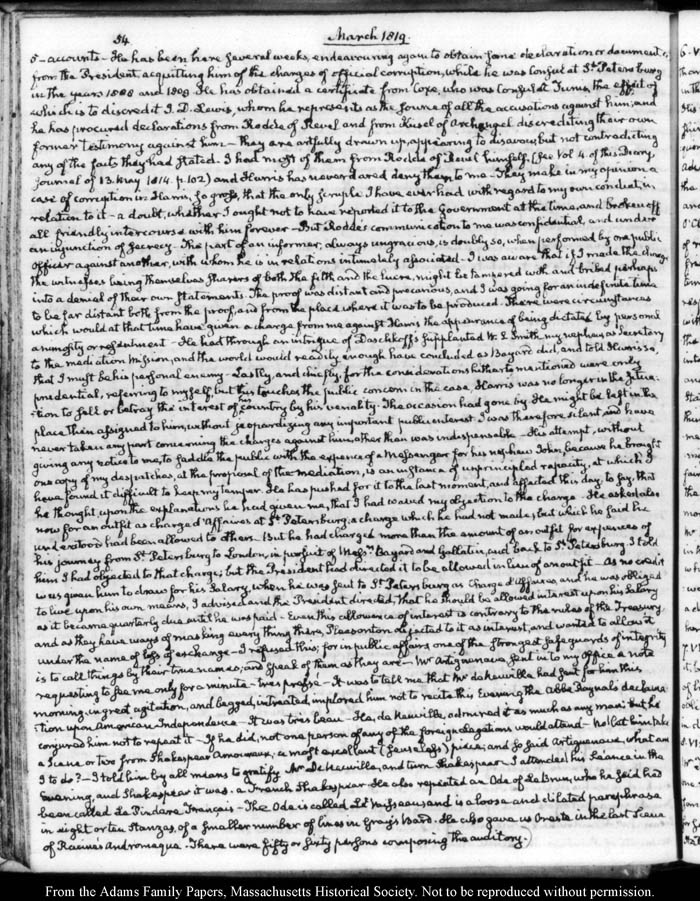 54 March 1819.
5 - accounts - He has been here several weeks, endeavouring again to obtain some declaration or document
from the President, acquitting him of the charges of official corruption, while he was Consul at St. Petersburg
in the years 1808 and 1809. He has obtained a certificate from Coxe, who was Consul at Tunis, the effect of
which is to discredit J. D. Lewis, whom he represents as the source of all the accusations against him; and
he has procured declarations from Rodde of Revel and from Kusel of Archangel discrediting their own
former testimony against him - they are artfully drawn up, appearing to disavow, but not contradicting
any of the facts they had stated. I had most of them from Rodde of Revel himself, (See Vol 4. of this Diary,
journal of 13. May 1814. p. 102) and Harris has never dared deny them to me - They make in my opinion a
case of corruption in Harris, so gross, that the only scruple I have ever had with regard to my own conduct, in
relation to it - a doubt, whether I ought not to have reported it to the Government at the time, and broken off
all friendly intercourse with him forever - But Rodde's communication to me was confidential, and under
an injunction of secrecy - The part of an informer, always ungracious, is doubly so, when performed by one public
Officer against another, with whom he is in relations intimately associated - I was aware that if I made the charge
the witnesses being themselves sharers of both the filth and the lucre, might be tampered with and bribed perhaps
into a denial of their own statements. The proof was distant and precarious, and I was going for an indefinite time
to be far distant both from the proof, and from the place where it was to be produced. There were circumstances
which would at that time have given a charge from me against Harris the appearance of being dictated by personal
animosity or resentment - He had through an intrigue of Daschkoff's supplanted W. S. Smith, my nephew, as Secretary
to the mediation Mission, and the world would readily enough have concluded as Bayard did, and told Harris so,
that I must be his personal enemy - Lastly, and chiefly, for the considerations hitherto mentioned were only
prudential, referring to myself, but this touches the public concern in the case, Harris was no longer in the situa-
tion to sell or betray the interest of his country by his venality. The occasion had gone by. He might be left in the
place then assigned to him, without jeopardizing any important public interest. I was therefore silent and have
never taken any part concerning the charges against him, other than was indispensable - His attempt, without
giving any notice to me, to saddle the public with the expence of a Messenger for his nephew John, because he brought
one copy of my despatches, at the proposal of the mediation, is an instance of unprincipled rapacity, at which I
have found it difficult to keep my temper. He has pushed for it to the last moment, and affected this day, to say, that
he thought upon the explanations he had given me, that I had waved my objection to the charge - He asked also
now for an outfit as Chargé d'Affaires at St. Petersburg, a charge which he had not made, but which he said he
understood had been allowed to others. But he had charged more than the amount of an outfit for expences of
his journey from St. Petersburg to London, in pursuit of Messrs. Bayard and Gallatin, and back to St. Petersburg. I told
him I had objected to that charge; but the President had directed it to be allowed in lieu of an outfit - As no credit
was given him to draw for his Salary, when he was left to St. Petersburg as Chargé d'Affaires, and he was obliged
to live upon his own means, I advised and the President directed, that he should be allowed interest upon his Salary
as it became quarterly due until he was paid - Even this allowance of interest is contrary to the rules of the Treasury,
and as they have ways of masking every thing there, Pleasonton objected to it as interest, and wanted to allow it
under the name of loss of exchange - I refused this; for in public affairs one of the strongest safeguards of integrity
is to call things by their true names, and speak of them as they are - Mr. Artiguenave, sent in to my Office a note
requesting to see me only for a minute - tres pressé - It was to tell me that Mr. de Neuville had sent for him this
morning, in great agitation, and begged, intreated, implored him not to recite this Evening the abbe Raynal's declama-
tion upon American Independence - It was tres beau - He, de Neuville, admired it as much as any man; but he
conjured him not to repeat it - If he did, not one person of any of the foreign Legations would attend - No! let him take
a Scene or two from Shakespear Amoureux; a most excellent (senseless) piece; and so said Artiguenave, what am
I to do? - I told him by all means to gratify Mr. de Neuville, and turn Shakespear. I attended his Séance in the
Evening, and Shakespear it was, a French Shakespear. He also repeated an Ode of Le Brun, who he said had
been called Le Pindare Français - The Ode is called Le Vaisseau, and is a loose and dilated paraphrase
in eight or ten stanzas, of a smaller number of lines in Gray's Bard. He also gave us Oreste in the last Scene
of Racine's Andromaque. There were fifty or sixty persons composing the auditory.)
From the Adams Family Papers, Massachusetts Historical Society. Not to be reproduced without permission.